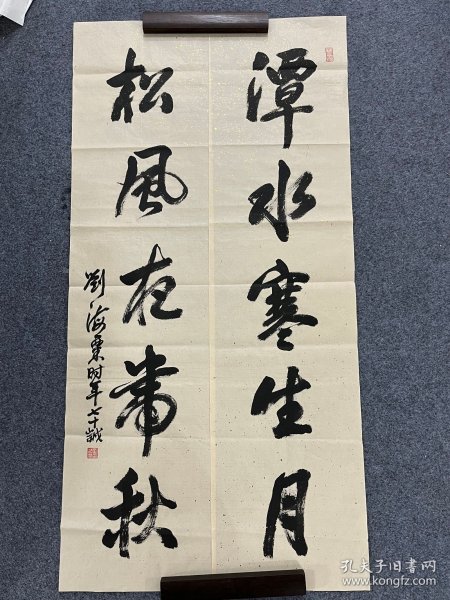 潭水寒生月
松風夜帶秋
劉海粟时年七十歲
孔夫子旧书网
www.kongfz.com